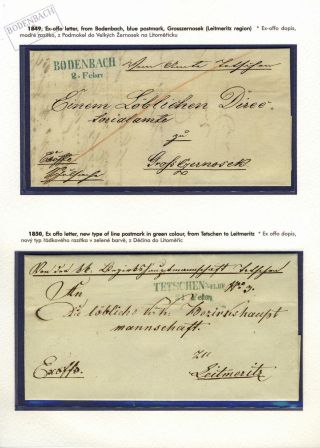 BODENBACH
1849, Ex-offo letter, from Bodenbach, blue postmark, Grosszernosek (Leitmeritz region) * Ex-offo dopis,
modré razítko, z Podmokel do Velkých Žernosek na Litoměřicku
BODENBACH
2. Febr.
Vom Amte Tetschen
Einem Löblichen Direc-
torialamte
zu
Exoffo
Großczernosek
1850, Ex offo letter, new type of line postmark in green colour, from Tetschen to Leitmeritz * Ex offo dopis,
nový typ řádkového razítka v zelené barvě, z Děčína do Litoměřic
Von der kk. Bezirkshauptmannschaft Tetschen
TETSCHEN
21 Febr.
No 3.
An
Die löbliche k.k. Bezirkshaupt
mannschaft
zu
Exoffo.
Leitmeritz